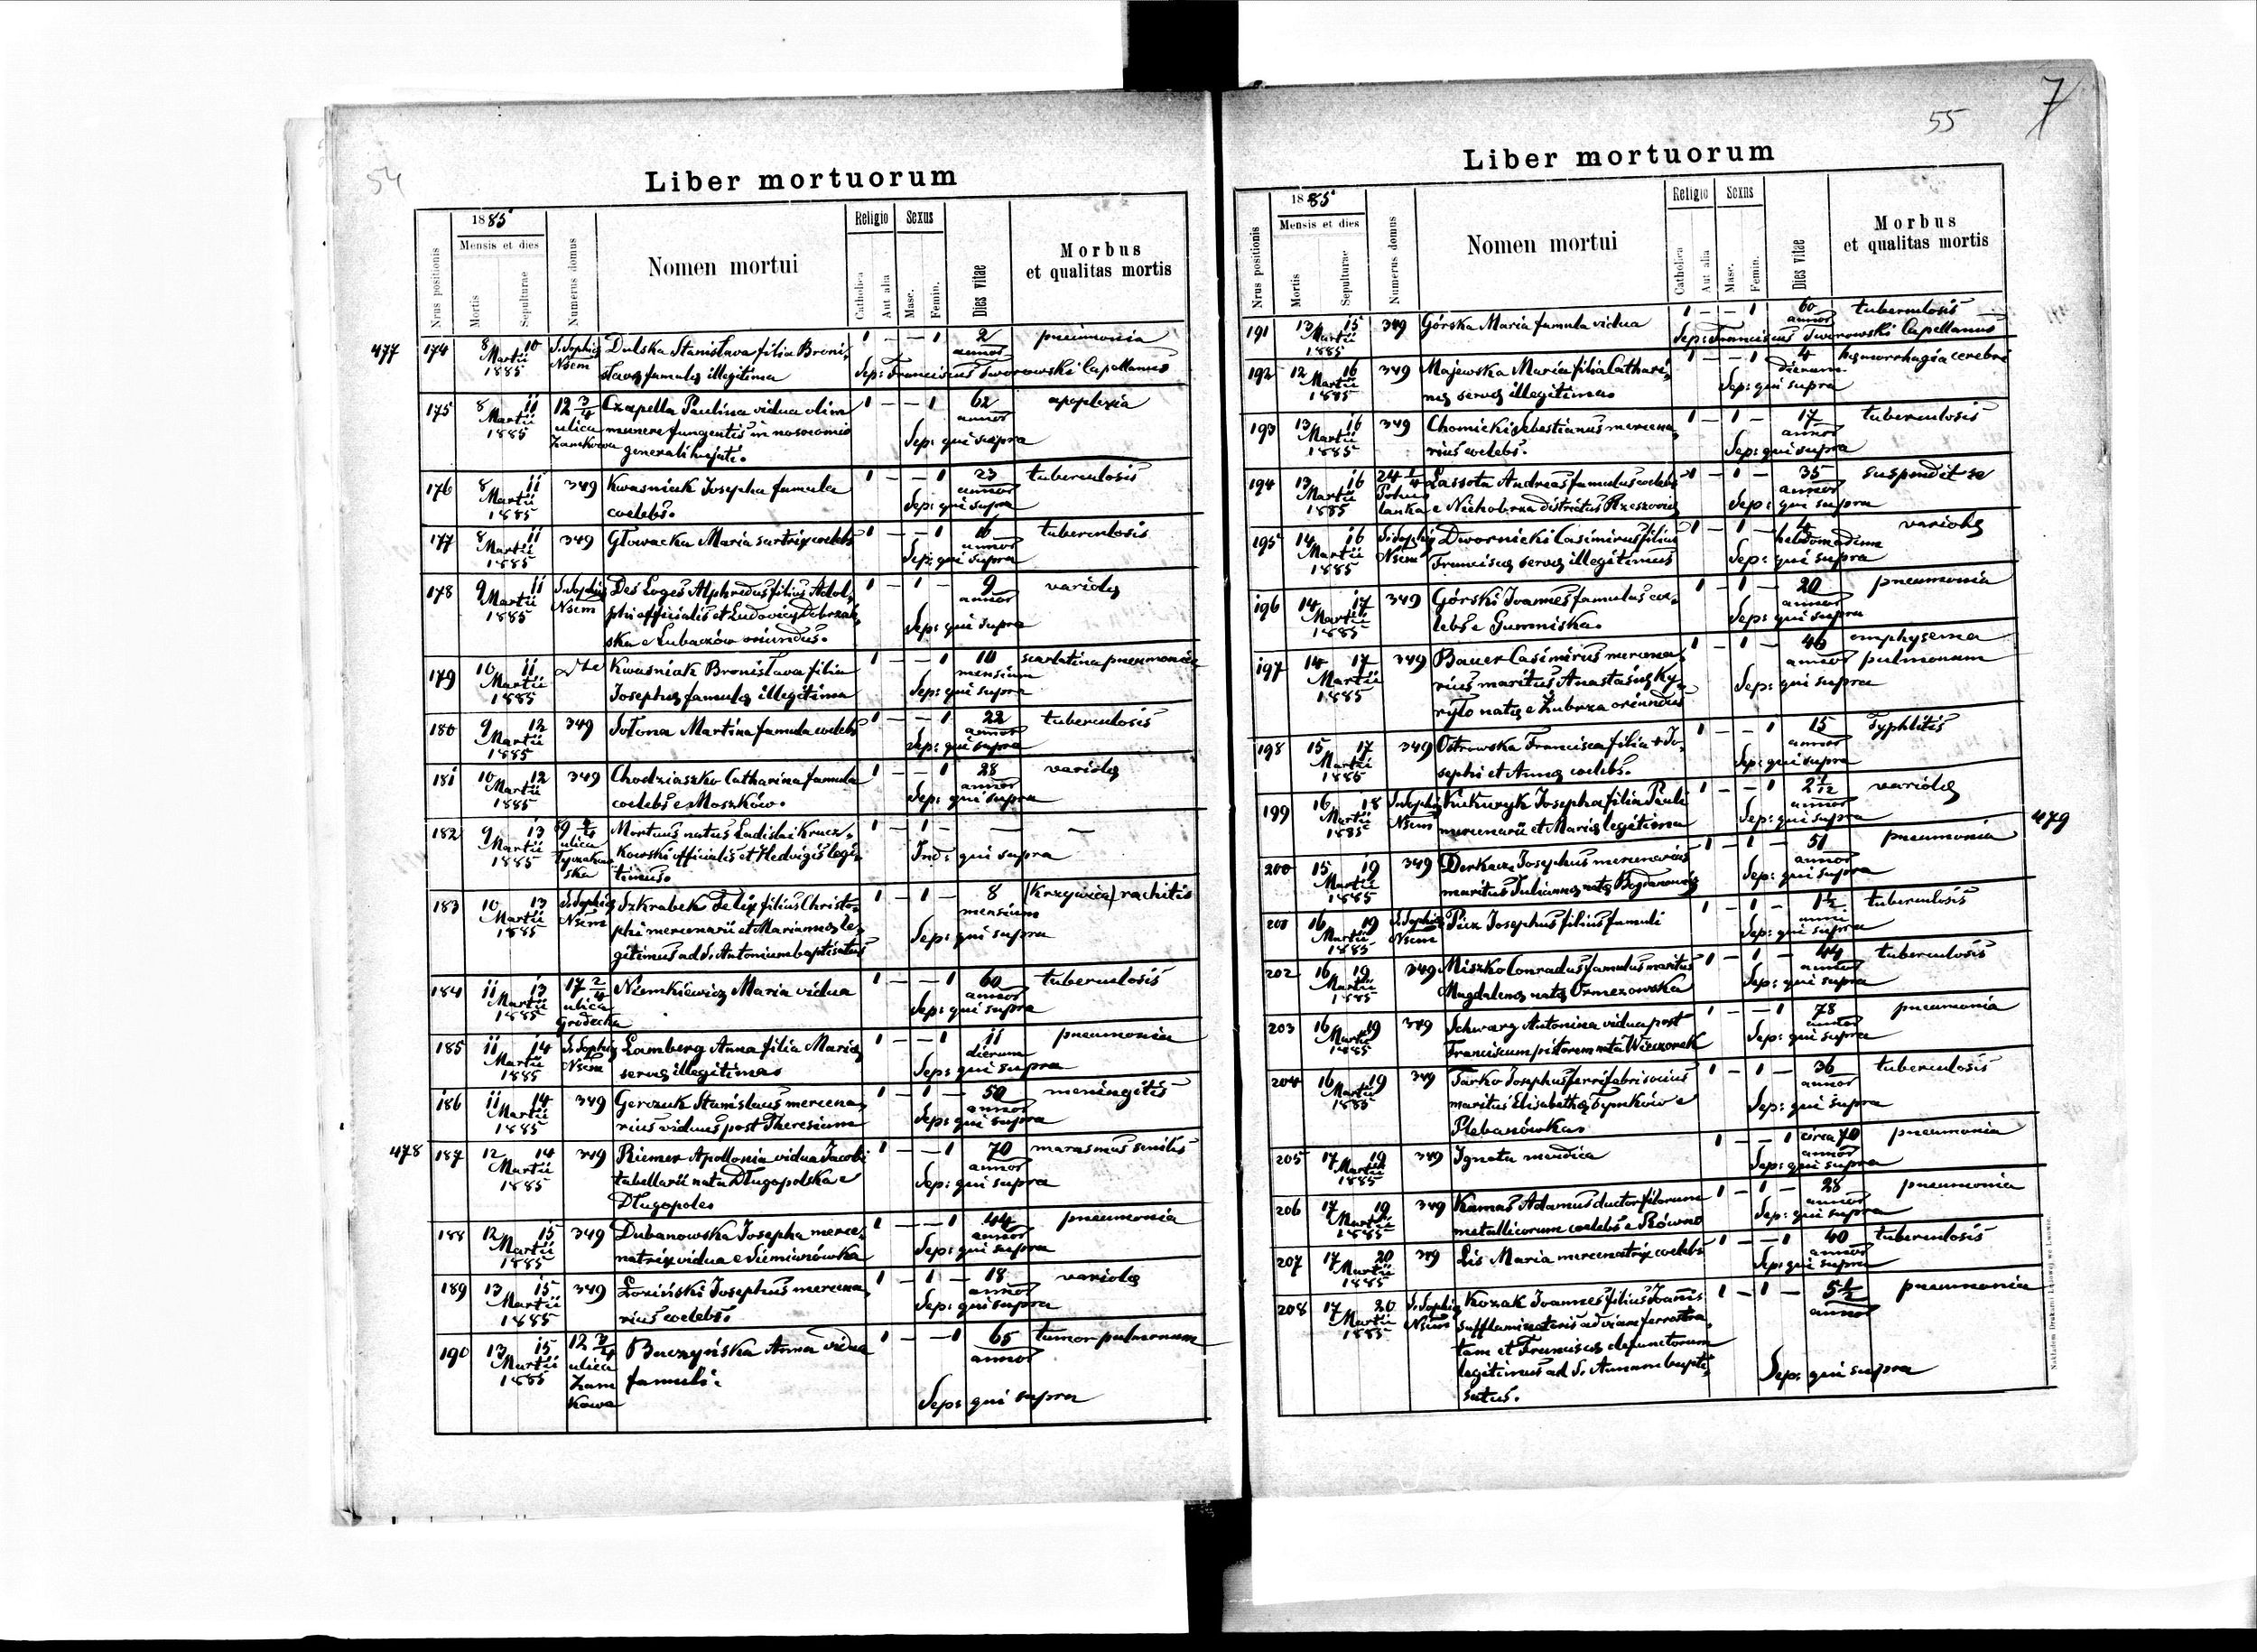 54
Liber mortuorum
1885
Mensis et dies
Nrus positionis
Mortis
Sepulturae
Numerus domus
Nomen mortui
Religio
Catholica
Aut alia
Sexus
Masc.
Femin.
Dies vitae
Morbus
et qualitas mortis
477 174 8 10 S. Sophię Dulska Stanislava filia Broni, 1 – – 1 2 pneumonia
Martii Nsem slavę famulę illegitima annor
1885 Sep: Franciscus Tworowski Capellanus
175 8 11 12 3/4 Czapella Paulina vidua olim 1 – – 1 62 apoplexia
Martii ulica munere fungentis in nosocomio annor
1885 Zamkowa generali hujate. Sep: qui supra
176 8 11 349 Kwasniak Josepha famula 1 – – 1 23 tuberculosis
Martii coelebs. annor
1885 Sep: qui supra
177 8 11 349 Głowacka Maria sartrix coelebs 1 – – 1 16 tuberculosis
Martii annor
1885 Sep: qui supra
178 9 11 S. Sophię Des Loges Alphredus filius Adol, 1 – 1 – 9 variolę
Martii Nsem phi officialis et Ludovicę Dobrzań, annor
1885 ska e Lubaczów oriundus. Sep: qui supra
179 10 11 Kwasniak Bronislava filia 1 – – 1 10 scarlatina pneumonia
Martii Josephę famulę illegitima mensium
1885 Sep: qui supra
180 9 12 349 Sołona Martina famula coelebs 1 – – 1 22 tuberculosis
Martii annor
1885 Sep: qui supra
181 10 12 349 Chodziaszko Catharina famula 1 – – 1 28 variolę
Martii coelebs e Moszków. annor
1885 Sep: qui supra
182 9 13 9 4/4 Mortuus natus Ladislai Krucz, 1 – 1 – — —
Martii ulica kowski officialis et Hedvigis legi,
1885 Łyczakow ska timus. Ind: qui supra
183 10 13 S. Sophię Szkrabek Felix filius Christo, 1 – 1 – 8 (Krzywica) rachitis
Martii Nsem phi mercenarii et Mariannę le, mensium
1885 gitimus ad S. Antonium baptisatus Sep: qui supra
184 11 13 17 2/4 Niemkiewicz Maria vidua 1 – – 1 60 tuberculosis
Martii ulica annor
1885 Grodecka Sep: qui supra
185 11 14 S. Sophię Lamberg Anna filia Marię 1 – – 1 11 pneumonia
Martii Nsem servę illegitima dierum
1885 Sep: qui supra
186 11 14 349 Gerczuk Stanislaus mercena, 1 – 1 – 50 meningitis
Martii rius viduus post Theresiam annor
1885 Sep: qui supra
478 187 12 14 349 Riemer Apollonia vidua Jacobi 1 – – 1 70 marasmus senilis
Martii tabellarii nata Długopolska e annor
1885 Długopole Sep: qui supra
188 12 15 349 Dubanowska Josepha merce, 1 – – 1 44 pneumonia
Martii natrix vidua e Siemianówka annor
1885 Sep: qui supra
189 13 15 349 Łoziński Josephus mercena, 1 – 1 – 18 variolę
Martii rius coelebs. annor
1885 Sep: qui supra
190 13 15 12 3/4 Buczyńska Anna vidua 1 – – 1 65 tumor pulmonum
Martii ulica famuli. annor
1885 Zam kowa Sep: qui supra
55
7
Liber mortuorum
1885
Mensis et dies
Nrus positionis
Mortis
Sepulturae
Numerus domus
Nomen mortui
Religio
Catholica
Aut alia
Sexus
Masc.
Femin.
Dies vitae
Morbus
et qualitas mortis
191 13 15 349 Górska Maria famula vidua 1 – – 1 60 tuberculosis
Martii annor
1885 Sep: Franciscus Tworowski Capellanus
192 12 16 349 Majewska Maria filia Cathari, 1 – – 1 4 hęmorrhagia cerebri
Martii nę servę illegitima dierum
1885 Sep: qui supra
193 13 16 349 Chomicki Sebastianus mercena, 1 – 1 – 17 tuberculosis
Martii rius coelebs. annor
1885 Sep: qui supra
194 13 16 24 1/4 Lassota Andreas famulus coelebs 1 – 1 – 35 suspendit se
Martii Pohu lanka e Niechobrza districtus Rzeszovię annor
1885 Sep: qui supra
195 14 16 S. Sophię Dwornicki Casimirus filius 1 – 1 – 4 variolę
Martii Nsem Franciscę servę illegitimus hebdomadum
1885 Sep: qui supra
196 14 17 349 Górski Joannes famulus coe, 1 – 1 – 20 pneumonia
Martii lebs e Gumniska. annor
1885 Sep: qui supra
197 14 17 349 Bauer Casimirus mercena, 1 – 1 – 46 emphysema
Martii rius maritus Anastasię Ky, annor pulmonum
1885 ryło natę e Zubrza oriundus Sep: qui supra
198 15 17 349 Ostrowska Francisca filia + Jo, 1 – – 1 15 Typhlitis
Martii sephi et Annę coelebs. annor
1885 Sep: qui supra
199 16 18 S. Sophię Kukuryk Josepha filia Pauli 1 – – 1 2 1/2 variolę
Martii Nsem mercenarii et Marię legitima annor
1885 Sep: qui supra 479
200 15 19 349 Derkacz Josephus mercenarius 1 – 1 – 51 pneumonia
Martii maritus Juliannę natę Bogdanowicz annor
1885 Sep: qui supra
201 16 19 S. Sophię Josephus filius famuli 1 – 1 – 1 1/2 tuberculosis
Martii Nsem anni
1885 Sep: qui supra
202 16 19 349 Miszko Conradus famulus maritus 1 – 1 – 44 tuberculosis
Martii Magdalenę natę Ormezowska annor
1885 Sep: qui supra
203 16 19 349 Schwarg Antonina vidua post 1 – – 1 78 pneumonia
Martii Franciscum pistorem nata Wieczorek annor
1885 Sep: qui supra
204 16 19 349 Tarko Josephus ferrifabri socius 1 – 1 – 36 tuberculosis
Martii maritus Elisabethę Tymków e annor
1885 Plebanówka Sep: qui supra
205 17 19 349 Ignota mendica 1 – – 1 circa 70 pneumonia
Martii annor
1885 Sep: qui supra
206 17 19 349 Kamas Adamus ductor filorum 1 – 1 – 28 pneumonia
Martii metallicorum coelebs e Równo annor
1885 Sep: qui supra
207 17 20 349 Lis Maria mercenatrix coelebs 1 – – 1 40 tuberculosis
Martii annor
1885 Sep: qui supra
208 17 20 S. Sophię Kozak Joannes filius Joanis 1 – 1 – 5 1/2 pneumonia
Martii Nsem sufflaminatoris ad viam ferro stra, annor
1885 tam et Franciscę defunctorum
legitimus ad S. Annam bapti, Sep: qui supra
satus.
Nakładem Drukarni Ludowej we Lwowie.